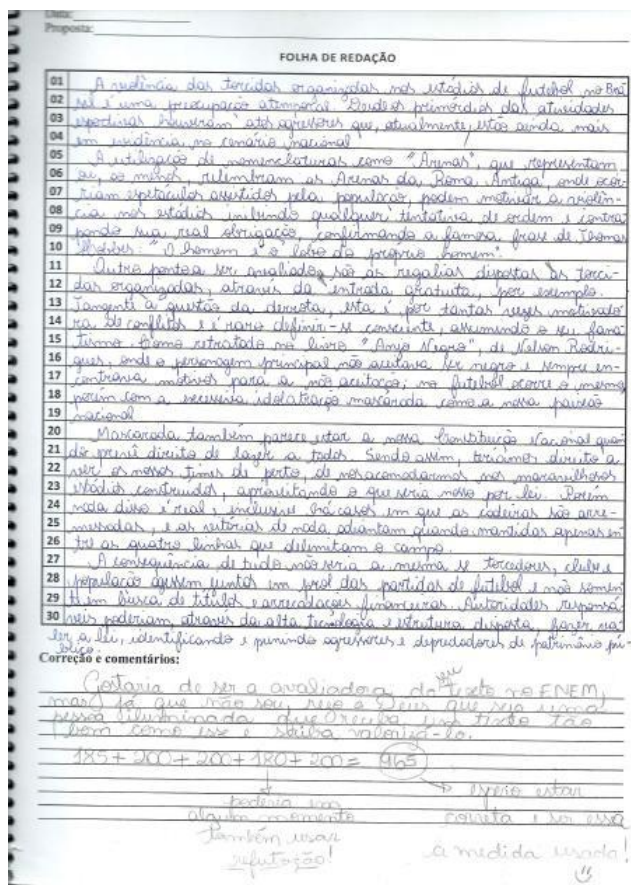 Data:
Proposta:
FOLHA DE REDAÇÃO
01 A violência das torcidas organizadas nos estádios de futebol no Bra
02 sil é uma preocupação atemporal. Desde os primórdios das atividades
03 esportivas houveram atos agressores que, atualmente, estão ainda mais
04 em evidência no cenário nacional.
05 A utilização de nomenclaturas como "Arenas", que representam
06 ou, ao menos, relembram as Arenas da Roma Antiga, onde ocor-
07 riam espetáculos assistidos pela população, podem motivar a violên-
08 cia nos estádios inibindo qualquer tentativa de ordem e contra
09 pondo sua real obrigação, confirmando a famosa frase de Thomas
10 Hobbes: "O homem é o lobo do próprio homem".
11 Outro ponto a ser avaliado são as regalias dispostas às torci-
12 das organizadas, através da entrada gratuita, por exemplo.
13 Tangente à questão da derrota, esta é por tantas vezes motivado
14 ra de conflitos e é raro definir-se consciente, assumindo o seu fana
15 tismo. Como retratado no livro "Anjo Negro", de Nelson Rodri-
16 gues, onde o personagem principal não aceitava ser negro e sempre en-
17 contrava motivos para a não aceitação; no futebol ocorre o mesmo
18 porém com a excessiva idolatração mascarada como a nossa paixão
19 nacional.
20 Mascarada também parece estar a nossa Constituição Nacional quan
21 do prevê direito de lazer a todos. Sendo assim, teríamos direito a
22 ver os nossos times de perto, de nos acomodarmos nos maravilhosos
23 estádios construídos, aproveitando o que seria nosso por lei. Porém
24 nada disso é real e inclusive há casos em que as cadeiras são arre-
25 messadas, e as vitórias de nada adiantam quando mantidas apenas en
26 tre as quatro linhas que delimitam o campo.
27 A consequência de tudo não seria a mesma se torcedores, clubes e
28 população agissem juntos em prol das partidas de futebol e não somen
29 te em busca de títulos e arrecadações financeiras. Autoridades responsá
30 veis poderiam, através da alta tecnologia e estrutura disposta, fazer va
ler a lei, identificando e punindo agressores e depredadores de patrimônio pú-
blico.
Correção e comentários:
Gostaria de ser a avaliadora do seu texto no ENEM,
mas já que não sou, rogo a Deus que seja uma
pessoa iluminada que receba um texto tão
bom como esse e saiba valorizá-lo.
185 + 200 + 200 + 180 + 200 = 965
poderia em
algum momento
também usar
refutação!
espero estar
correta e ser essa
a medida usada!